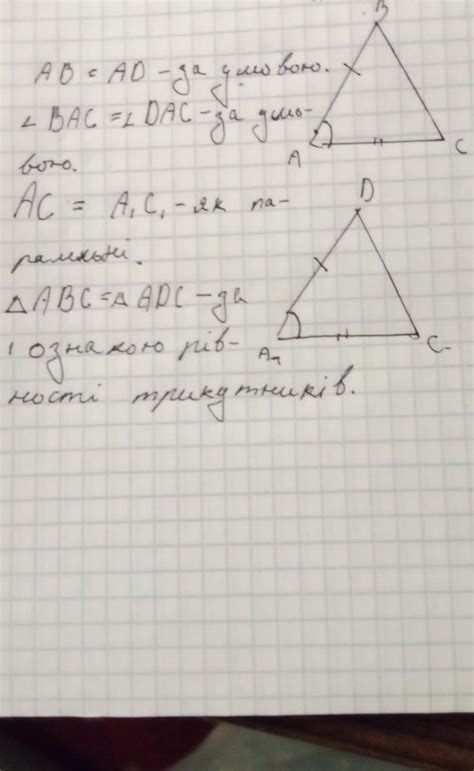 AB = AD - за умовою.
∠ BAC = ∠ DAC - за умо-
вою.
AC = A₁C₁ - як па-
ралельні.
△ ABC = △ ADC - за
1 ознакою рів-
ності трикутників.
B
A
C
D
A₁
C₁